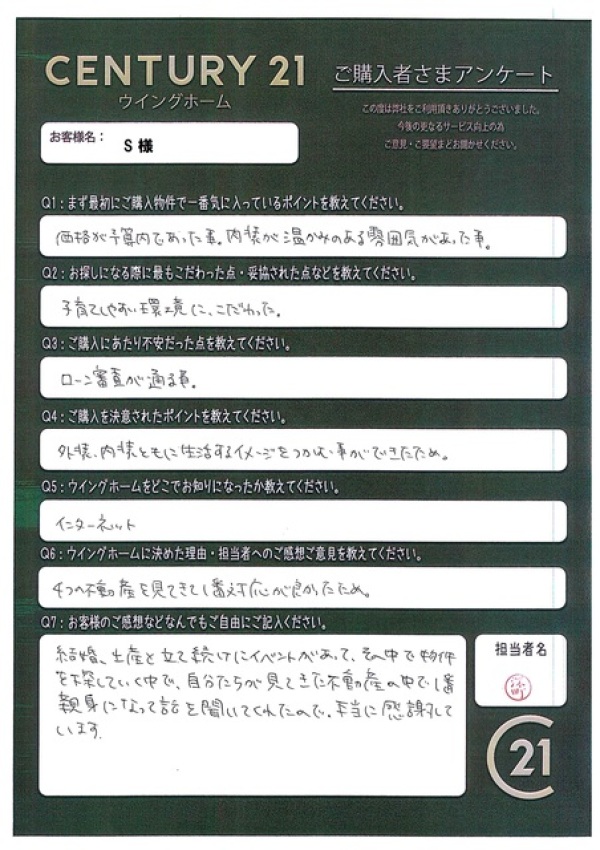 CENTURY 21
ウイングホーム
ご購入者さまアンケート
この度は弊社をご利用頂きありがとうございました。
今後の更なるサービス向上の為
ご意見・ご要望まどお聞かせください。
お客様名：
S 様
Q1：まず最初にご購入物件で一番気に入っているポイントを教えてください。
価格が予算内であった事。内装が温かみのある雰囲気があった事。
Q2：お探しになる際に最もこだわった点・妥協された点などを教えてください。
子育てしやすい環境に、こだわった。
Q3：ご購入にあたり不安だった点を教えてください。
ローン審査が通る事。
Q4：ご購入を決意されたポイントを教えてください。
外装、内装ともに生活するイメージをつかむ事ができたため。
Q5：ウイングホームをどこでお知りになったか教えてください。
インターネット
Q6：ウイングホームに決めた理由・担当者へのご感想ご意見を教えてください。
4つの不動産を見てきて1番対応が良かったため。
Q7：お客様のご感想などなんでもご自由にご記入ください。
結婚、生産と立て続けにイベントがあって、その中で物件
を探していく中で、自分たちが見てきた不動産の中で1番
親身になって話を聞いてくれたので、本当に感謝して
います。
担当者名
C21